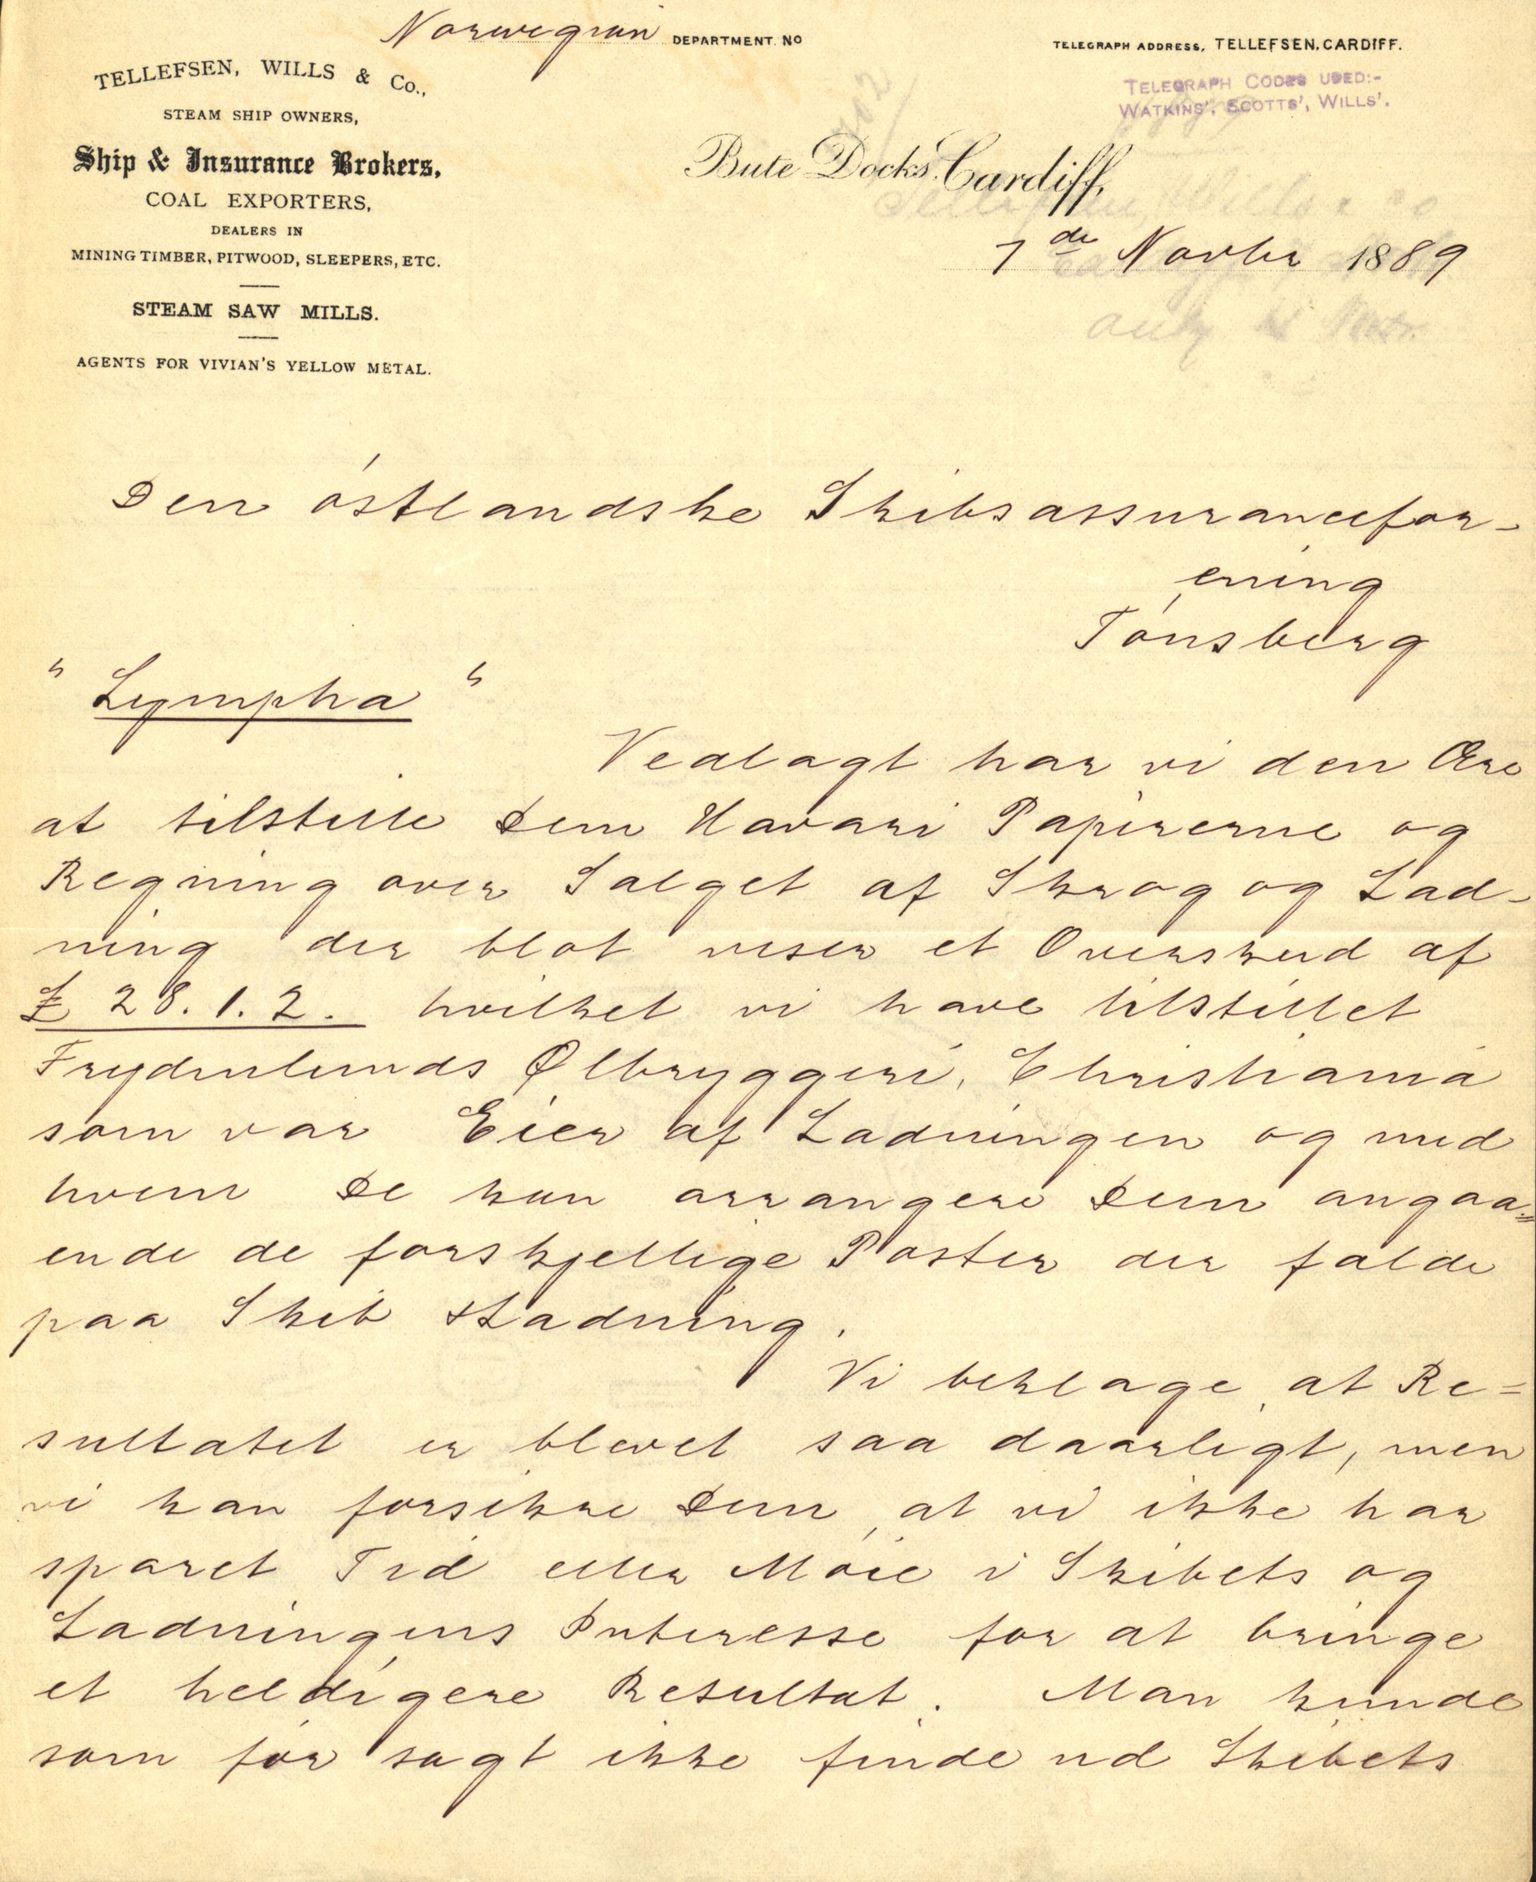 Norwegian DEPARTMENT. No
TELEGRAPH ADDRESS, TELLEFSEN, CARDIFF.
TELLEFSEN, WILLS & Co.,
STEAM SHIP OWNERS,
Ship & Insurance Brokers,
COAL EXPORTERS,
DEALERS IN
MINING TIMBER, PITWOOD, SLEEPERS, ETC.
STEAM SAW MILLS.
AGENTS FOR VIVIAN'S YELLOW METAL.
TELEGRAPH CODES USED:-
WATKINS', SCOTTS', WILLS'.
Bute Docks, Cardiff,
Tellefsen, Wills & Co
7de Novbr 1889
Den östlandske Skibsassurancefor-
ening
Tönsberg
"Lympha"
Vedlagt har vi den Ære
at tilstille Dem Havari Papirerne og
Regning over Salget af Skrog og Lad-
ning der blot viser et Overskud af
£ 28.1.2. hvilket vi have tilstillet
Frydenlunds Ølbryggeri, Christiania
som var Eier af Ladningen og med
hvem De kan arrangere Dem angaa=
ende de forskjellige Poster der falde
paa Skib & Ladning.
Vi beklage, at Re=
sultatet er blevet saa daarligt, men
vi kan forsikre Dem, at vi ikke har
sparet Tid eller Möie i Skibets og
Ladningens Interesse for at bringe
et heldigere Resultat. Man kunde
som för sagt ikke finde ud Skibets